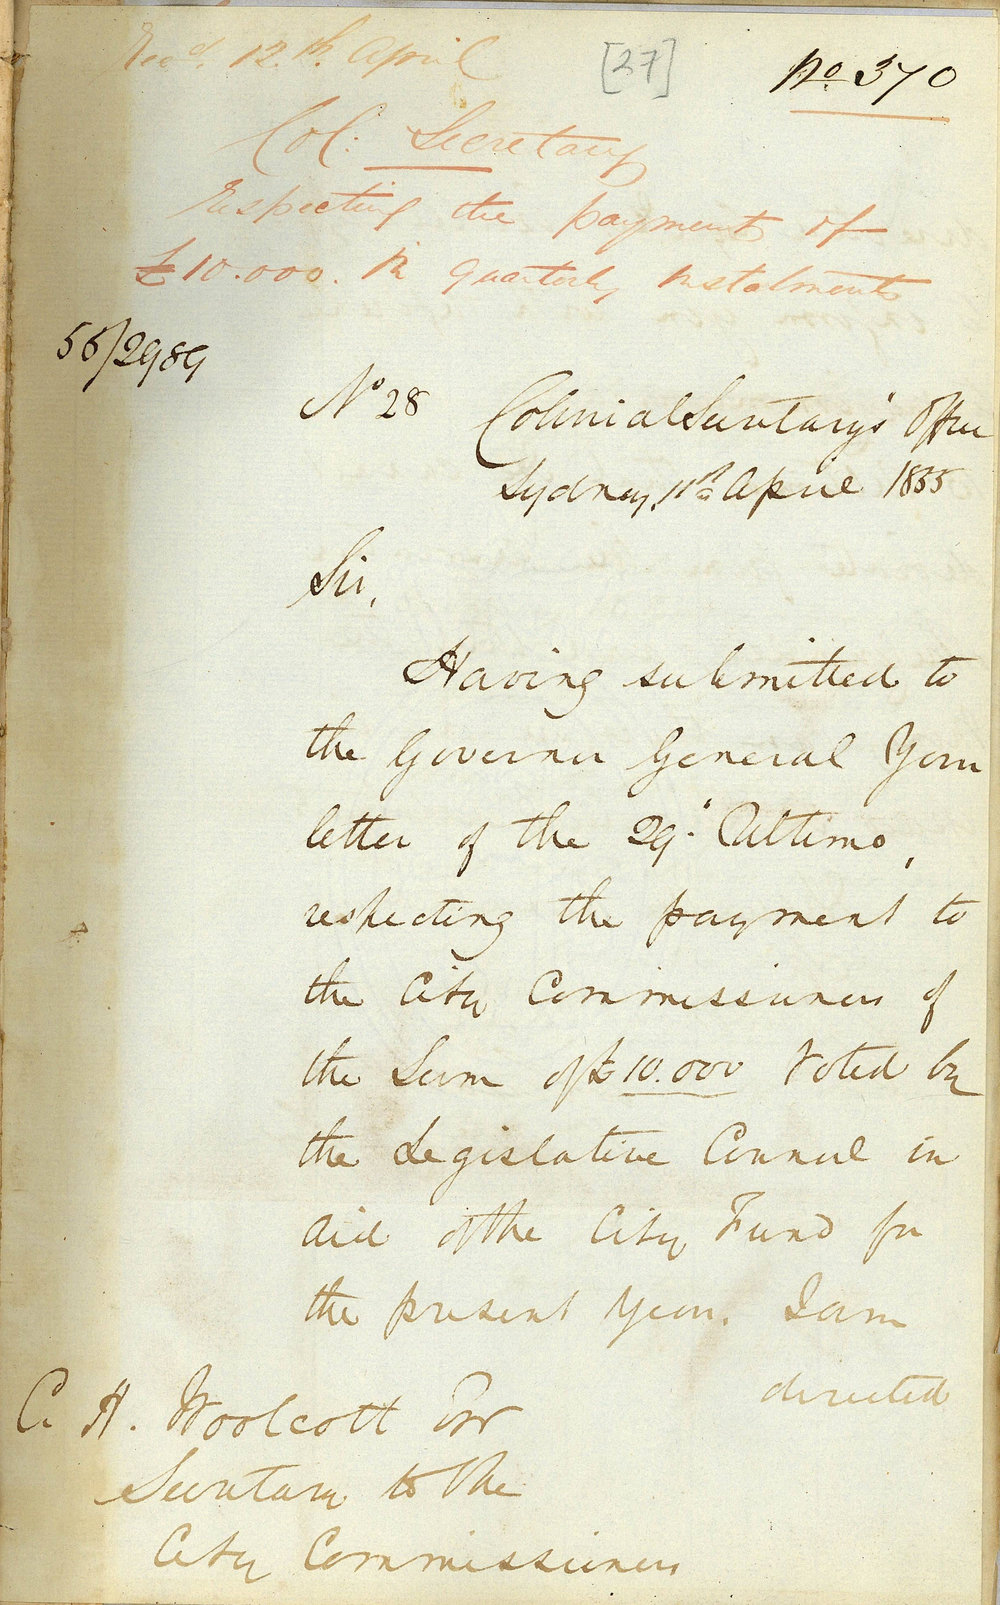 Recd. 12.th. April
[27]
No 370
Col: Secretary
Respecting the payment of
£10.000. in quarterly instalments
55/2989
No 28 Colonial Secretary's Office
Sydney, 11th April 1855
Sir,
Having submitted to
the Governor General Your
letter of the 29th Ultimo,
respecting the payment to
the City Commissioners of
the Sum of £10.000 Voted by
the Legislative Council in
aid of the City Fund for
the present Year. I am
directed
C. H. Woolcott Esqr
Secretary to the
City Commissioners